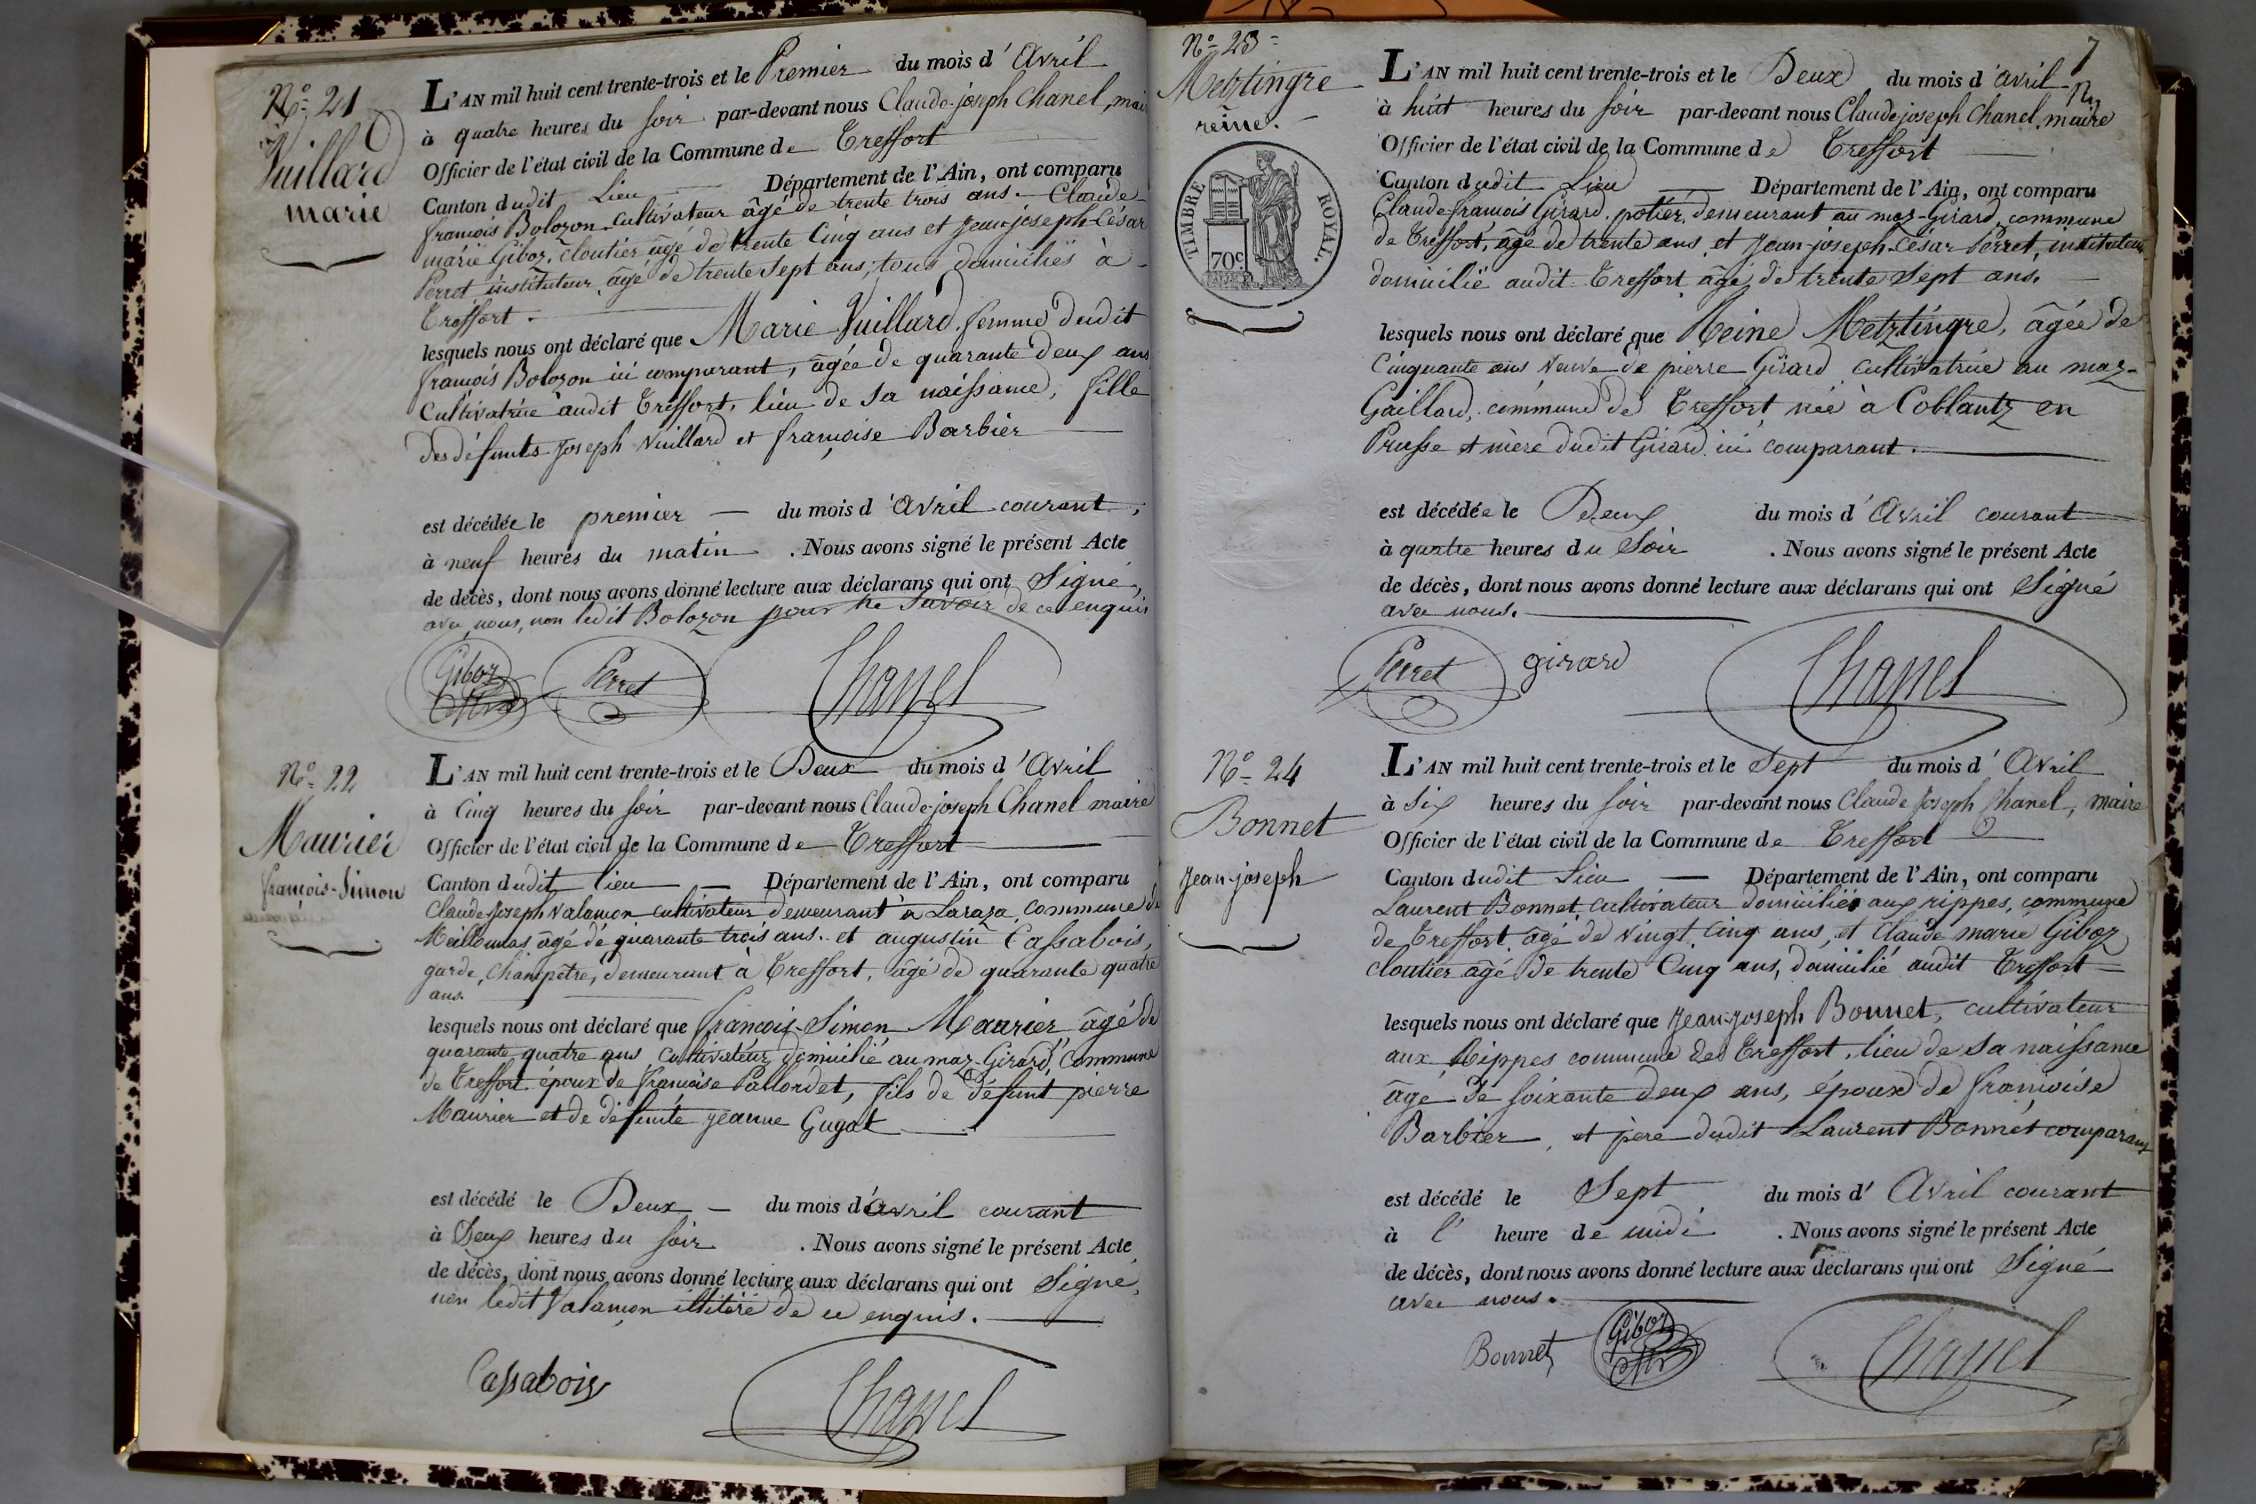 N° 21
Vuillard
marie
L'AN mil huit cent trente-trois et le Premier du mois d'Avril
à quatre heures du soir par-devant nous Claude-joseph Chanel, mai
Officier de l'état civil de la Commune de Treffort
Canton dudit Lieu Département de l'Ain, ont comparu
françois Bolozon cultivateur âgé de trente trois ans. Claude-
marie Giboz, cloutier âgé de trente Cinq ans et Jean-joseph-César
Perret instituteur âgé de trente Sept ans; tous domiciliés à
Treffort.
lesquels nous ont déclaré que Marie Vuillard femme dudit
françois Bolozon ici comparant, âgée de quarante deux ans
Cultivatrice audit Treffort, lieu de sa naissance, fille
des défunts Joseph Vuillard et françoise Barbier
est décédée le premier du mois d'avril courant,
à neuf heures du matin. Nous avons signé le présent Acte
de décès, dont nous avons donné lecture aux déclarans qui ont Signé,
avec nous, non ledit Bolozon pour ne Savoir de ce enquis
Giboz Perret Chanel
N° 22
Maurier
françois-Simon
L'AN mil huit cent trente-trois et le Deux du mois d'Avril
à Cinq heures du soir par-devant nous Claude-joseph Chanel maire
Officier de l'état civil de la Commune de Treffort
Canton dudit lieu Département de l'Ain, ont comparu
Claude-Joseph Valançon cultivateur demeurant à Laraza, commune de
Meillonnas âgé de quarante trois ans. et augustin Cassabois,
garde, champêtre, demeurant à Treffort, âgé de quarante quatre
ans.
lesquels nous ont déclaré que françois-Simon Maurier âgé de
quarante quatre ans cultivateur, domicilié au maz-Girard, Commune
de Treffort époux de françoise Pallordet, fils de défunt pierre
Maurier et de défunte jeanne Gugat
est décédé le Deux du mois d'avril courant
à Deux heures du soir. Nous avons signé le présent Acte
de décès, dont nous avons donné lecture aux déclarans qui ont Signé,
non ledit Valançon illitéré de ce enquis.
Cassabois Chanel
7
N° 23
Metztingre
reine.
TIMBRE ROYAL.
70c.
L'AN mil huit cent trente-trois et le Deux du mois d'avril
à huit heures du soir par-devant nous Claude-joseph Chanel, maire
Officier de l'état civil de la Commune de Treffort
Canton dudit Lieu Département de l'Ain, ont comparu
Claude françois Girard, potier, demeurant au maz-Girard, commune
de Treffort, âgé de trente ans et Jean-joseph-César Perret, instituteur
domicilié audit Treffort âgé de trente Sept ans.
lesquels nous ont déclaré que Reine Metztingre, âgée de
Cinquante ans veuve de pierre Girard cultivatrice au maz-
Gaillard, commune de Treffort née à Coblantz en
Prusse et mère dudit Girard ici comparant.
est décédée le Deux du mois d'Avril courant
à quatre heures du Soir. Nous avons signé le présent Acte
de décès, dont nous avons donné lecture aux déclarans qui ont Signé
avec nous.
Perret girard Chanel
N° 24
Bonnet
Jean-joseph
L'AN mil huit cent trente-trois et le Sept du mois d'Avril
à Six heures du soir par-devant nous Claude Joseph Chanel, maire
Officier de l'état civil de la Commune de Treffort
Canton dudit Lieu Département de l'Ain, ont comparu
Laurent Bonnet, cultivateur domicilié aux rippes, commune
de Treffort âgé de vingt Cinq ans, et Claude marie Giboz
cloutier âgé de trente Cinq ans, domicilié audit Treffort
lesquels nous ont déclaré que Jean-joseph Bonnet, cultivateur
aux Rippes commune de Treffort, lieu de sa naissance
âgé de soixante deux ans, époux de françoise
Barbier, et père dudit Laurent Bonnet comparant
est décédé le Sept du mois d'Avril courant
à l' heure de midi. Nous avons signé le présent Acte
de décès, dont nous avons donné lecture aux déclarans qui ont Signé
avec nous.
Bonnet Giboz Chanel